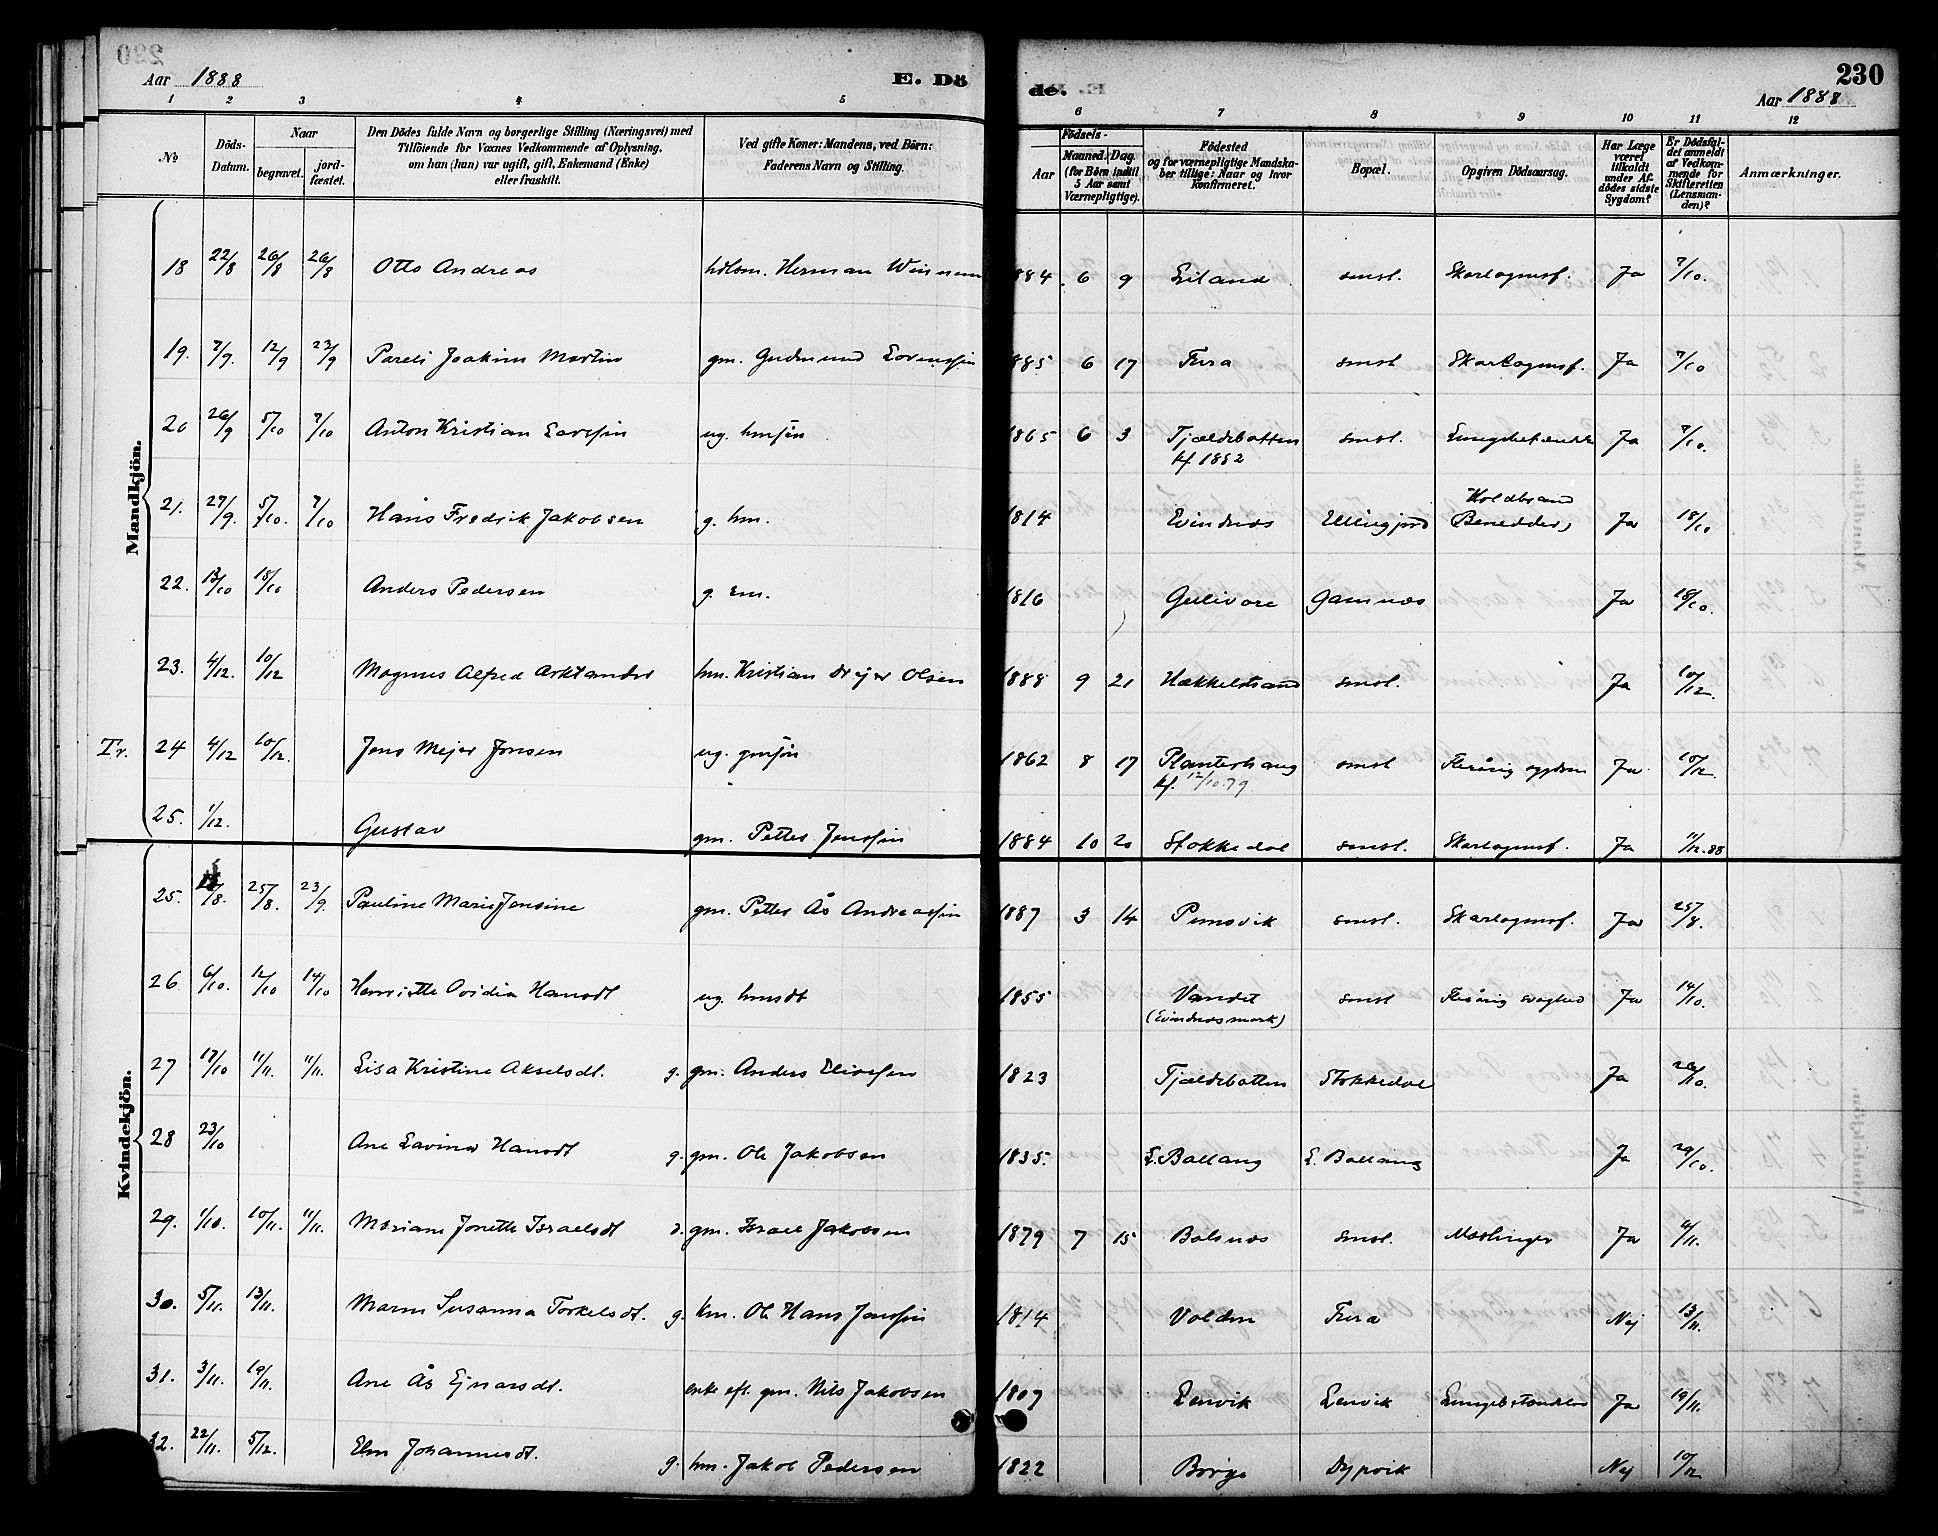 230
Aar 1888
E. Dö
de.
230
Aar 1888
1 2 3 4 5 6 7 8 9 10 11 12
No
Döds-Datum.
Naar
begravet.
jord-fæstet.
Den Dödes fulde Navn og borgerlige Stilling (Næringsvei) med Tilföiende for Voxnes Vedkommende af Oplysning, om han (hun) var ugift, gift, Enkemand (Enke) eller fraskilt.
Ved gifte Koner: Mandens, ved Börn: Faderens Navn og Stilling.
Födsels-
Aar
Maaned. Dag. (for Börn indtil 5 Aar samt Værnepligtige).
Födested og for værnepligtige Mandskaber tillige: Naar og hvor konfirmeret.
Bopæl.
Opgiven Dödsaarsag.
Har Læge været tilkaldt under Afdödes sidste Sygdom?
Er Dödsfaldet anmeldt af Vedkommende for Skifteretten (Lensmanden)?
Anmærkninger.
Mandkjön.
18 22/8 26/8 26/8 Otto Andreas Herman 1884 6 9 Leiland smst. Skarlagensf. Ja 7/10.
19. 7/9. 12/9 23/9 Pareli Joakim Martin gm. Gudmund Lorenssen 1885 6 17 Fura smst Skarlagensf. Ja 7/10
20 26/9 5/10 7/10 Anton Kristian ug. hmsön 1865 6 3 Tjældebotten smst. Ja 7/10.
kf 1882
21. 27/9. 5/10. 7/10 Hans Fredrik Jakobsen g. hm. 1814 Evindnes Koldbrand Ja 18/10
22. 13/10 18/10 Anders Pedersen g. 1816 Gamnes Ja 18/10.
23. 4/12. 10/12 Magnus Alfred Arktander hm. Kristian Drejer Olsen 1888 9 21 Hækkelstrand smst. Ja 10/12.
Tv. 24 4/12 10/12. Jens Mejer Jensen ug. gmsön 1862 8 17 smst Ja 10/12.
kf. 12/10.79
25. 1/12. Gustav gm. Petter Jenssen 1884 10 20 Stokkedal smst. Skarlagensf. Ja 11/12.88
Kvindekjön.
25. 25/8. 23/9. Pauline Marie Jensine gm. Petter Ås Andreassen 1887 3 14 smst. Skarlagensf. Ja 25/8.
26 6/10. 12/10 14/10 Henriette Ovidia Hansdt ug. hmsdt 1855 Vandet smst Ja 14/10.
(Evindnesmark)
27 17/10 11/11. 11/11. Lisa Kristine Akselsdt. g. gm. Anders 1823 Tjældebotten Stokkedal Ja
28 23/10 Ane Lavina Hansdt g. gm. Ole Jakobsen 1835. L. Ballang L. Ballang Ja 29/10.
29. 1/10. 10/11. 11/11. Mariane Jonette Israelsdt gm. Israel Jakobsen 1879 7 15 Balsnes smst. Mæslinger Ja
30. 5/11. 13/11. Maren Susanna Torkelsdt. g. hm. Ole Hans Jenssen 1814 Volden Fura Nej 13/11.
31. 3/11. 19/11. Ane Ås Ejnarsdt. enke eft. gm. Nils Jakobsen 1807 Lenvik Lenvik Ja 19/11.
32. 22/11. 5/12. Elen Johannesdt. g. hm. Jakob Pedersen 1822 Börge Dypvik Nej 10/12